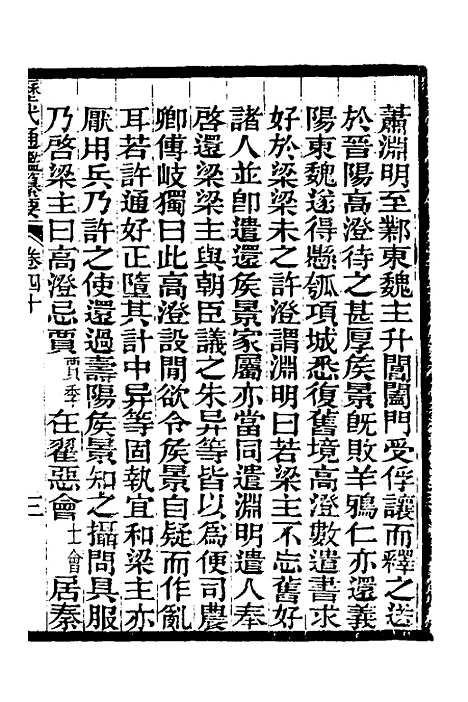 蕭淵明至鄴東魏主升閶闔門受俘讓而釋之送
於晉陽高澄待之甚厚矦景旣敗羊鴉仁亦還義
陽東魏遂得懸瓠項城悉復舊境高澄數遣書求
好於梁梁未之許澄謂淵明曰若梁主不忘舊好
諸人並卽遣還矦景家屬亦當同遣淵明遣人奉
啓還梁梁主與朝臣議之朱异等皆以為便司農
卿傅岐獨曰此高澄設閒欲令矦景自疑而作亂
耳若許通好正墮其計中异等固執宜和梁主亦
厭用兵乃許之使還過壽陽矦景知之攝問具服
乃啓梁主曰高澄忌賈賈季在翟惡會士會居秦
歷代通鑑纂要 卷四十 二